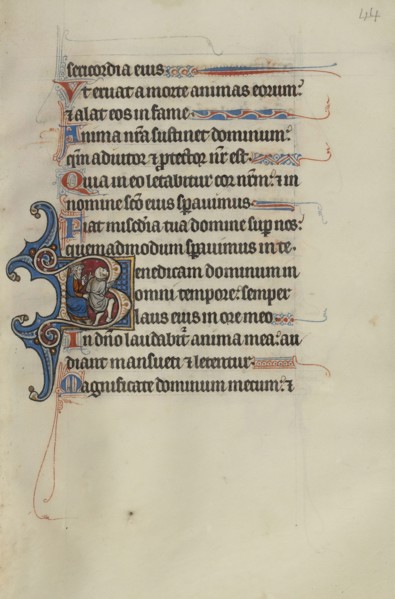 44
sericordia eius
Vt eruat a morte animas eorum:
⁊ alat eos in fame
Anima nr̃a sustinet dominum:
qm̃ adiutor ⁊ ꝓtector nr̃ est
Quia in eo letabitur cor nr̃m: ⁊ in
nomine sc̃o eius sꝑauimus
Fiat mis̃edia tua domine suꝑ nos:
quemadmodum sꝑauimus in te
Benedicam dominum in
omni tempore: semper
laus eius in ore meo
In dño laudabit᷑ anima mea: au
diant mansueti ⁊ letentur
Magnificate dominum mecum: ⁊